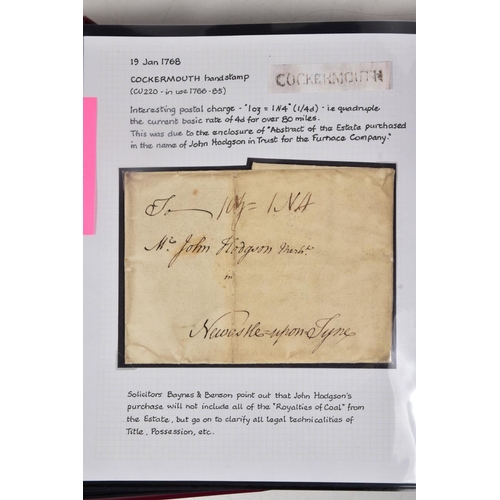 19 Jan 1768
COCKERMOUTH handstamp
(CU220 - in use 1766-85)
COCKERMOUTH
Interesting postal charge - "1oz = 1N4" (1/4d) - ie quadruple
the current basic rate of 4d for over 80 miles.
This was due to the enclosure of "Abstract of the Estate purchased
in the name of John Hodgson in Trust for the Furnace Company."
To 1oz = 1N4
Mr John Hodgson Mercht
in
Newcastle=upon Tyne
Solicitors Baynes & Benson point out that John Hodgson's
purchase will not include all of the "Royalties of Coal" from
the Estate, but go on to clarify all legal technicalities of
Title, Possession, etc.